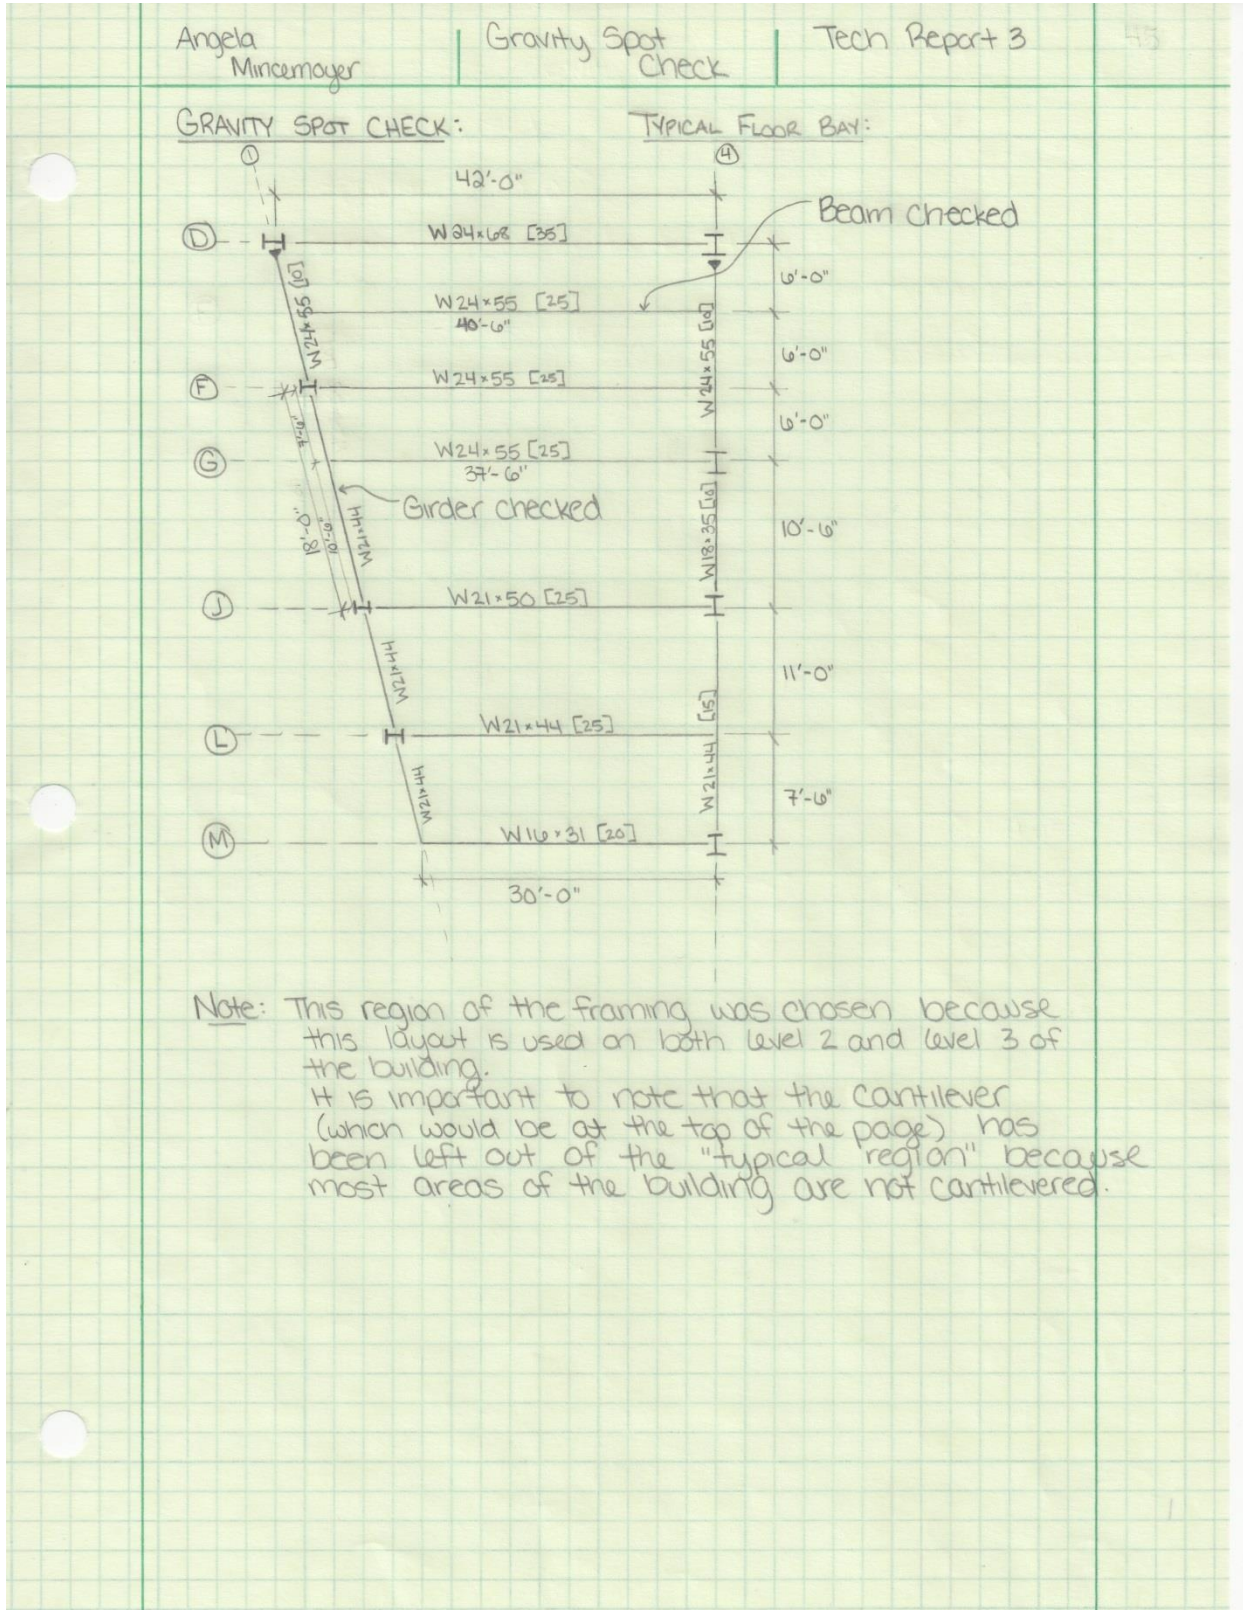 Angela
Mincemoyer
Gravity Spot
Check
Tech Report 3
GRAVITY SPOT CHECK:
TYPICAL FLOOR BAY:
1
4
42'-0"
Beam checked
D
W24×68 [35]
6'-0"
W24×55 [10]
W24×55 [25]
40'-6"
W24×55 [10]
6'-0"
F
W24×55 [25]
6'-0"
G
W24×55 [25]
37'-6"
Girder checked
18'-0"
10'-6"
W21×44
W18×35 [10]
10'-6"
J
W21×50 [25]
W21×44
11'-0"
L
W21×44 [25]
W21×44 [15]
W21×44
7'-6"
M
W16×31 [20]
30'-0"
Note: This region of the framing was chosen because
this layout is used on both level 2 and level 3 of
the building.
It is important to note that the cantilever
(which would be at the top of the page) has
been left out of the "typical region" because
most areas of the building are not cantilevered.